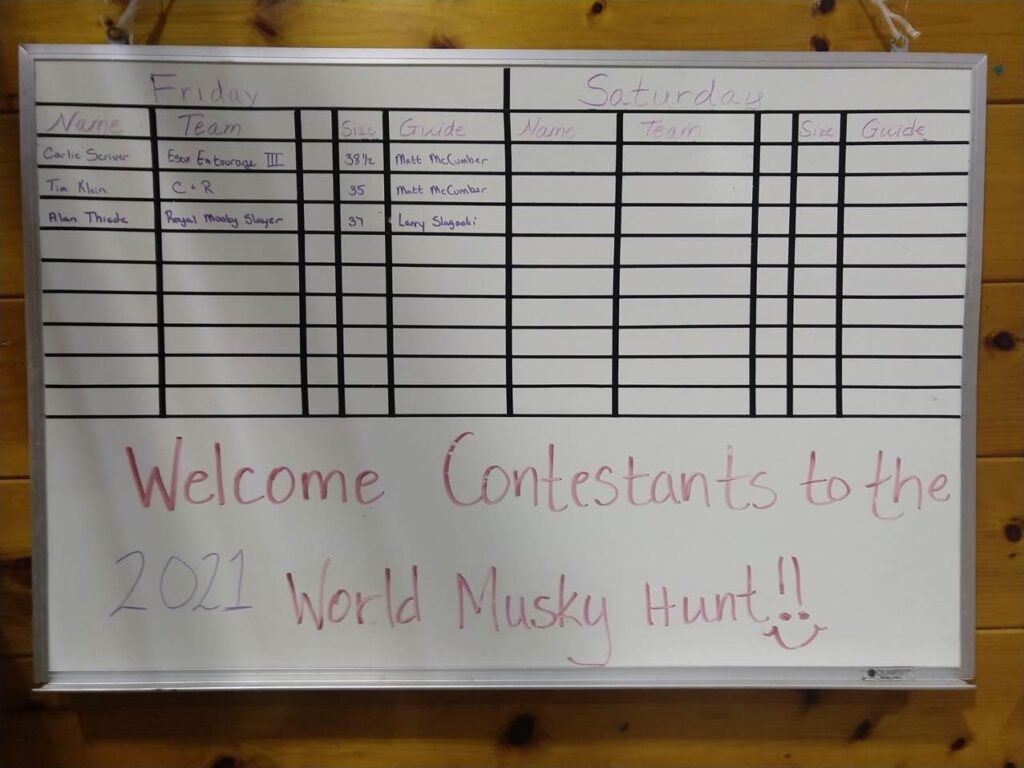 Friday Saturday
Name Team Size Guide Name Team Size Guide
Carlie Scriver Esox Entourage III 38 1/2 Matt McCumber
Tim Klein C + R 35 Matt McCumber
Alan Thiede Royal Mooby Slayer 37 Larry
Welcome Contestants to the
2021 World Musky Hunt!!
QUARTET